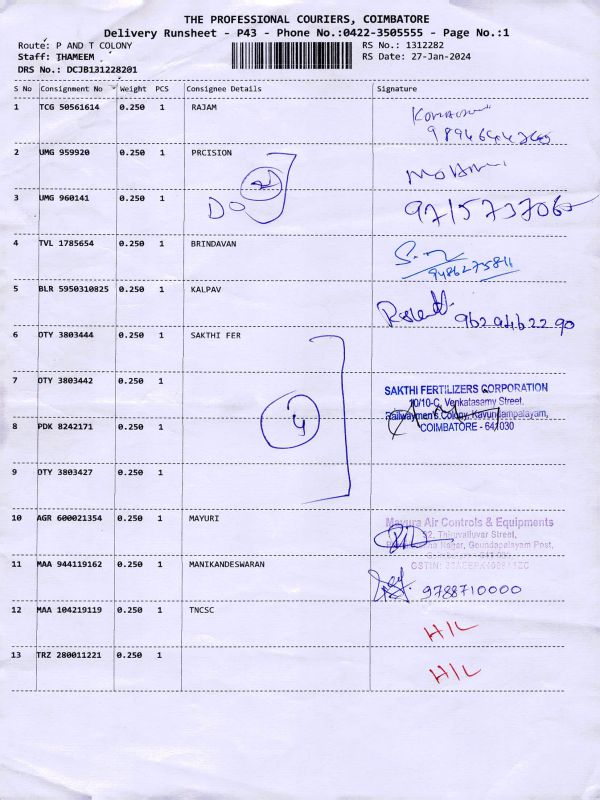 THE PROFESSIONAL COURIERS, COIMBATORE
Delivery Runsheet - P43 - Phone No.:0422-3505555 - Page No.:1
Route: P AND T COLONY
RS No.: 1312282
Staff: THAMEEM
RS Date: 27-Jan-2024
DRS No.: DCJB131228201
S No Consignment No Weight PCS Consignee Details Signature
1 TCG 50561614 0.250 1 RAJAM
2 UMG 959920 0.250 1 PRCISION
3 UMG 960141 0.250 1
DO
4 TVL 1785654 0.250 1 BRINDAVAN
9486275811
5 BLR 5950310825 0.250 1 KALPAV
9629462290
6 OTY 3803444 0.250 1 SAKTHI FER
7 OTY 3803442 0.250 1
SAKTHI FERTILIZERS CORPORATION
10/10-C, Venkatasamy Street,
Railwaymen's Colony, Kavundampalayam,
COIMBATORE - 641030
8 PDK 8242171 0.250 1
4
9 OTY 3803427 0.250 1
10 AGR 600021354 0.250 1 MAYURI
Mayura Air Controls & Equipments
52, Thiruvalluvar Street,
Nagar, Goundapalayam Post,
GSTIN:
11 MAA 944119162 0.250 1 MANIKANDESWARAN
9788710000
12 MAA 104219119 0.250 1 TNCSC
H/L
13 TRZ 280011221 0.250 1
H/L